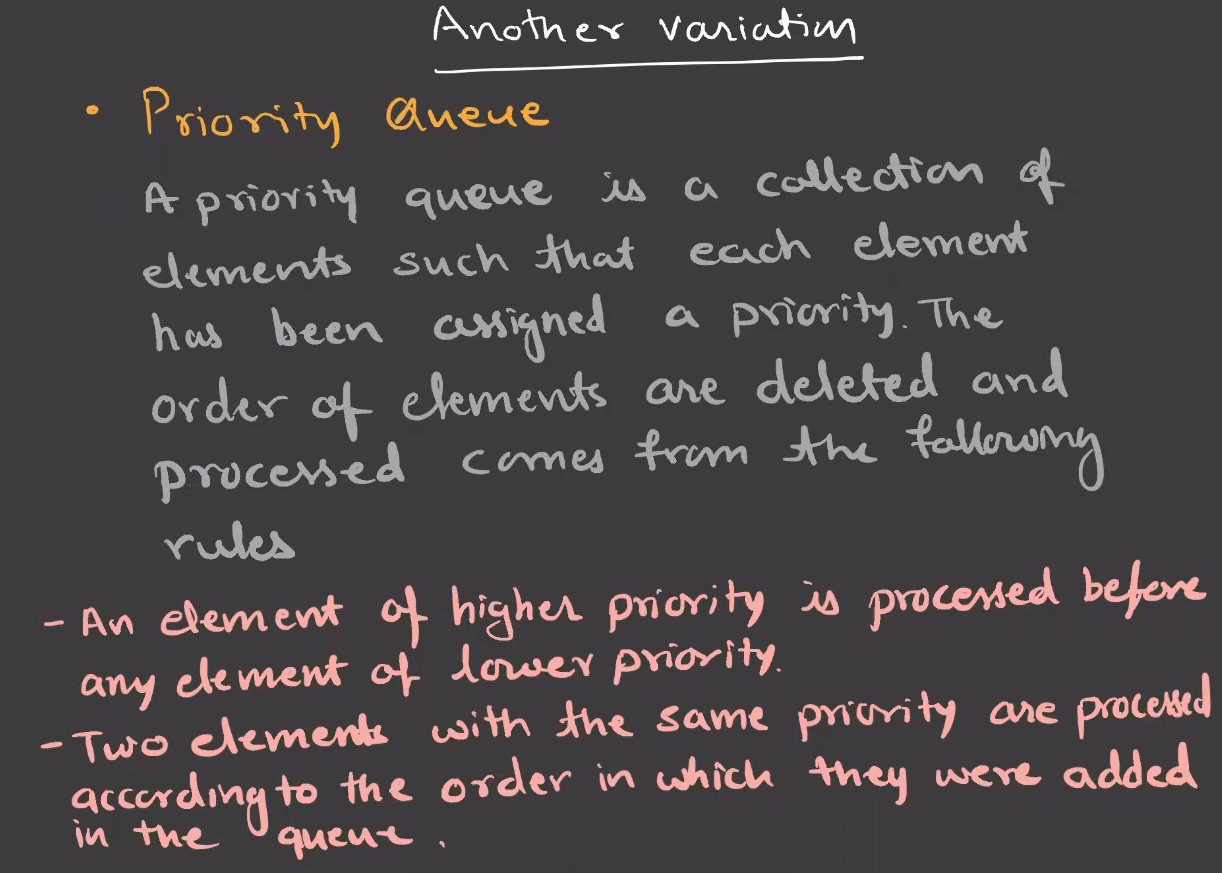 Another variation
• Priority Queue
A priority queue is a collection of
elements such that each element
has been assigned a priority. The
order of elements are deleted and
processed comes from the following
rules
- An element of higher priority is processed before
any element of lower priority.
- Two elements with the same priority are processed
according to the order in which they were added
in the queue.